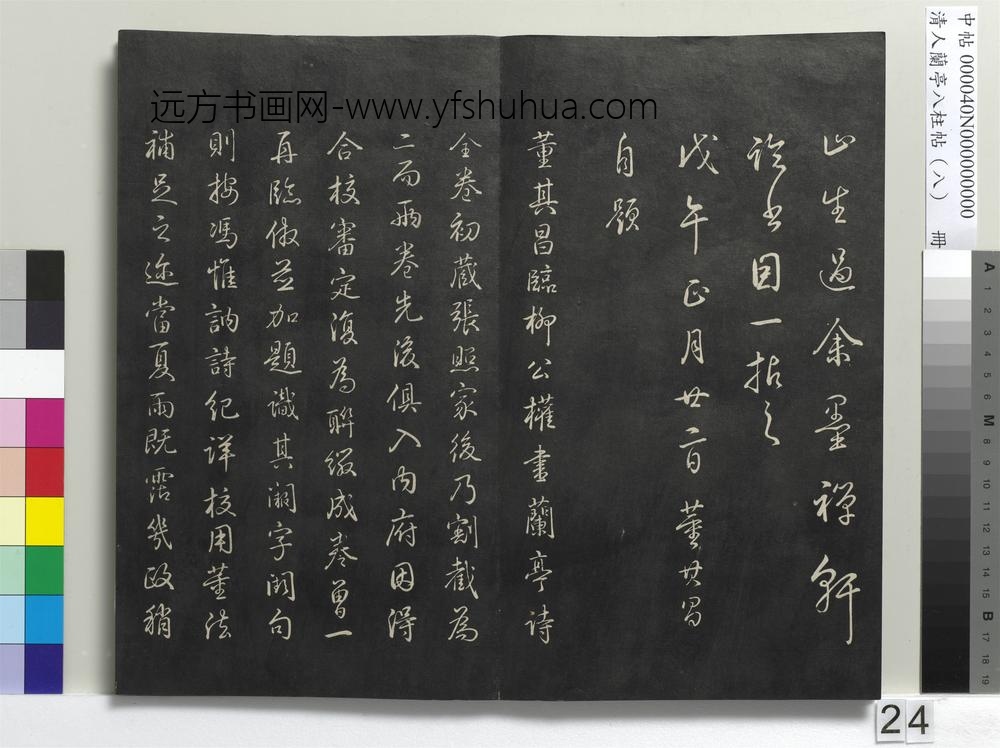 山生過余墨禪軒
論書因一拈之
戊午正月廿二日董其昌
自題
董其昌臨柳公權書蘭亭詩
全卷初藏張照家後乃割截為
二而兩卷先後俱入内府因得
合校審定復為聯綴成卷曾一
再臨倣並加題識其闕字闕句
則按馮惟訥詩紀詳校用董法
補足之迩當夏雨既霑幾政稍
远方书画网-www.yfshuhua.com
中帖000040N000000000
清人蘭亭八柱帖（八） 冊
A
1
2
3
4
5
6
M
8
9
10
11
12
13
14
15
B
17
18
19
24